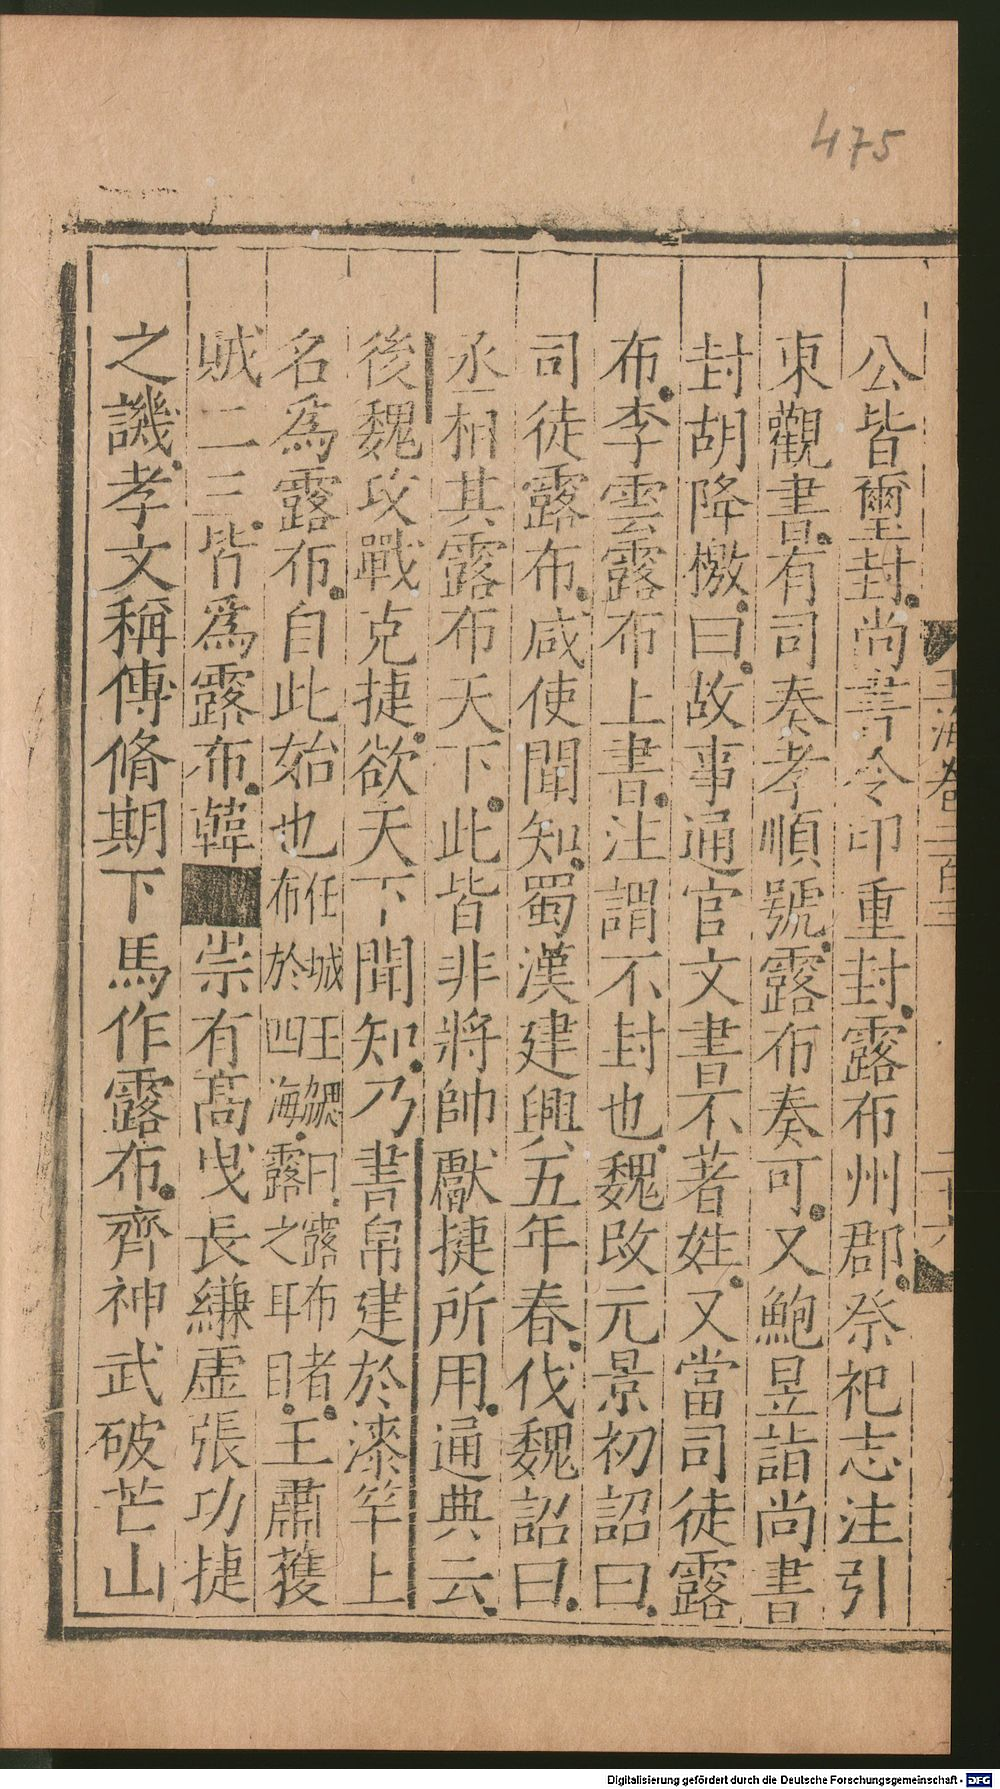 475
公皆璽封尚書令印重封露布州郡祭祀志注引
東觀書有司奏孝順號露布奏可又鮑昱詣尚書
封胡降檄曰故事通官文書不著姓又當司徒露
布李雲露布上書注謂不封也魏改元景初詔曰
司徒露布咸使聞知蜀漢建興五年春伐魏詔曰
丞相其露布天下此皆非將帥獻捷所用通典云
後魏攻戰克捷欲天下聞知乃書帛建於漆竿上
名為露布自此始也任城王勰曰露布者布於四海露之耳目王肅獲
賊二三皆為露布韓 崇有高曳長縑虛張功捷
之譏孝文稱傅脩期下馬作露布齊神武破芒山
玉海卷二百三
二十六
Digitalisierung gefördert durch die Deutsche Forschungsgemeinschaft - DFG